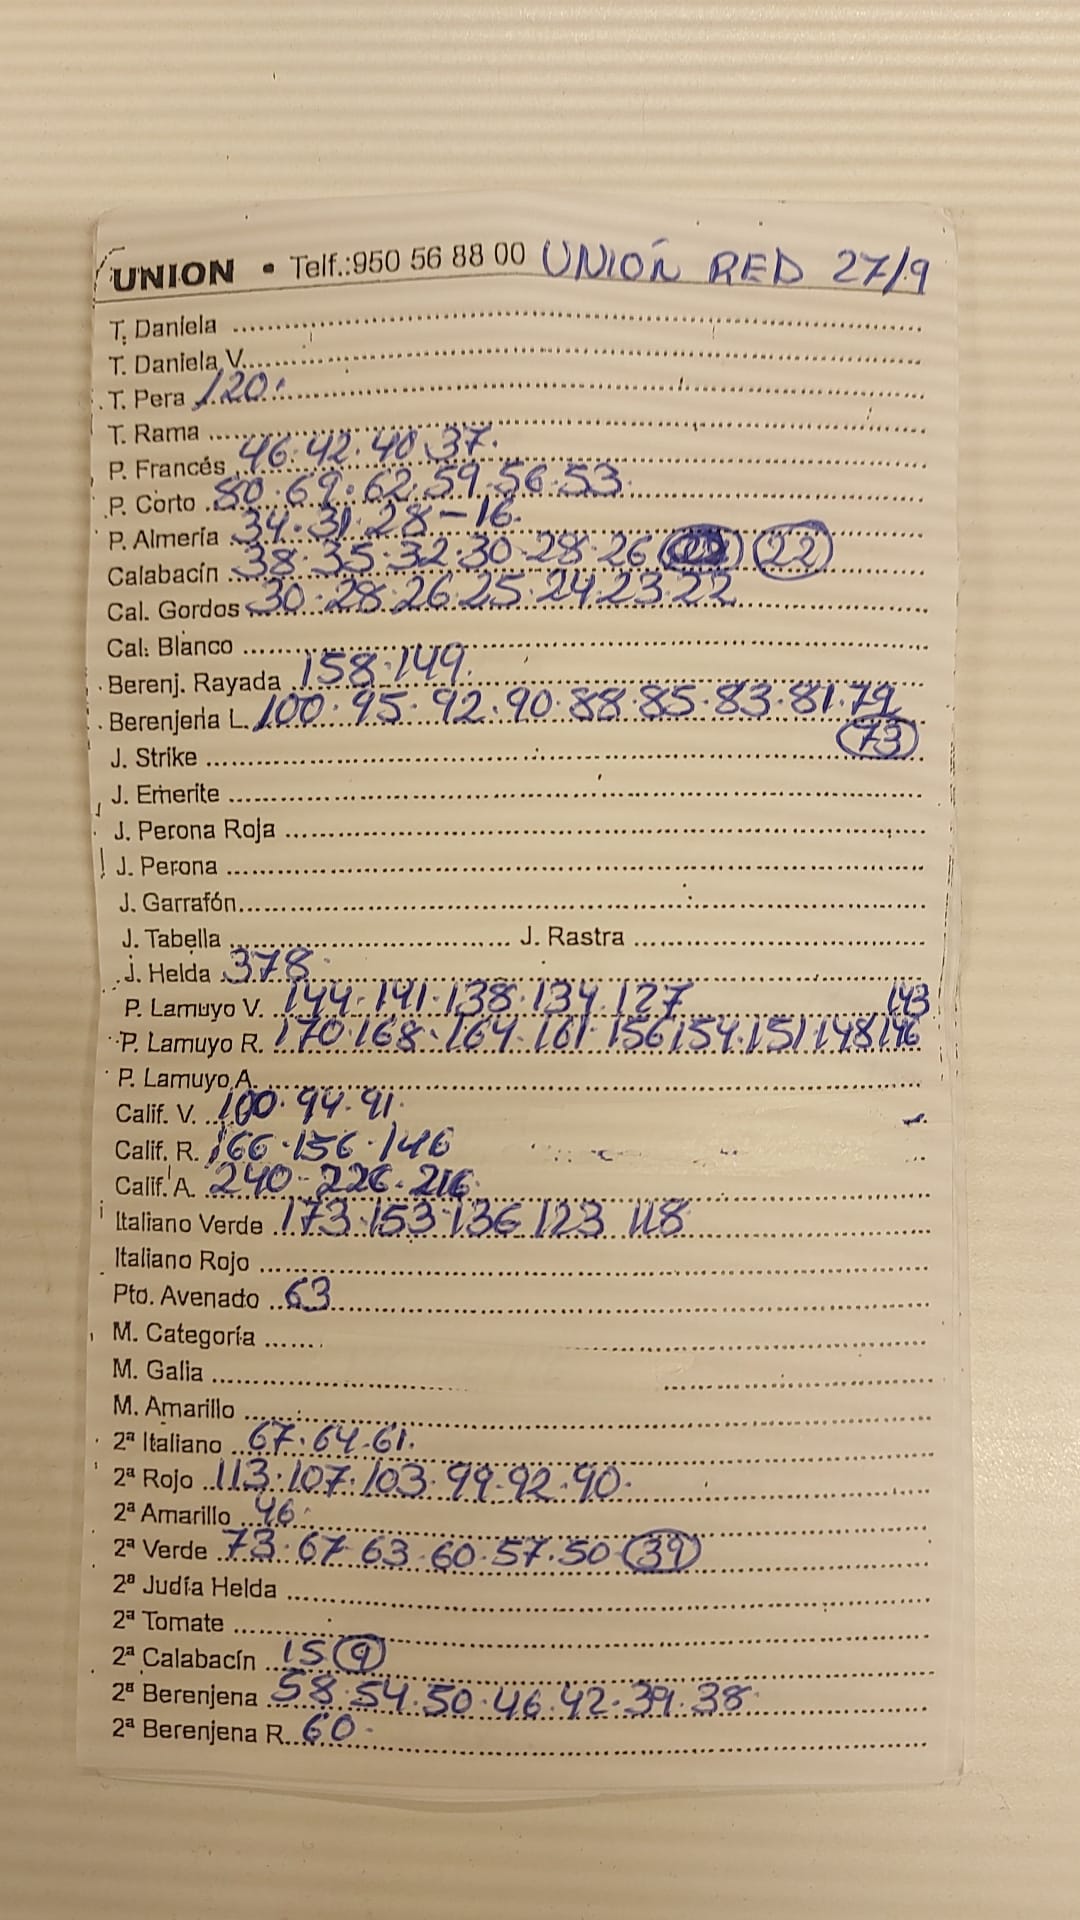 UNION • Telf.:950 56 88 00 UNIÓN RED 27/9
T. Daniela
T. Daniela V.
T. Pera 120.
T. Rama
P. Francés 46.42.40.37.
P. Corto 80.69.62.59.56.53.
P. Almería 34.31.28-16.
Calabacín 38.35.32.30.28.26 22
Cal. Gordos 30.28.26.25.24.23.22
Cal. Blanco
Berenj. Rayada 158.149.
Berenjena L. 100.95.92.90.88.85.83.81.79
73
J. Strike
J. Emerite
J. Perona Roja
J. Perona
J. Garrafón
J. Tabella J. Rastra
J. Helda 378.
P. Lamuyo V. 144.141.138.134.127 143
P. Lamuyo R. 170.168.164.161.156 154.151 148 146
P. Lamuyo A.
Calif. V. 100.94.91.
Calif. R. 166.156.146
Calif. A. 240-226.216.
Italiano Verde 173.153.136 123 118
Italiano Rojo
Pto. Avenado 63
M. Categoría
M. Galia
M. Amarillo
2ª Italiano 67.64.61.
2ª Rojo 113.107.103.99.92.90.
2ª Amarillo 46.
2ª Verde 73.67.63.60.57.50 39
2ª Judía Helda
2ª Tomate
2ª Calabacín 15 9
2ª Berenjena 58.54.50.46.42.39.38.
2ª Berenjena R. 60.